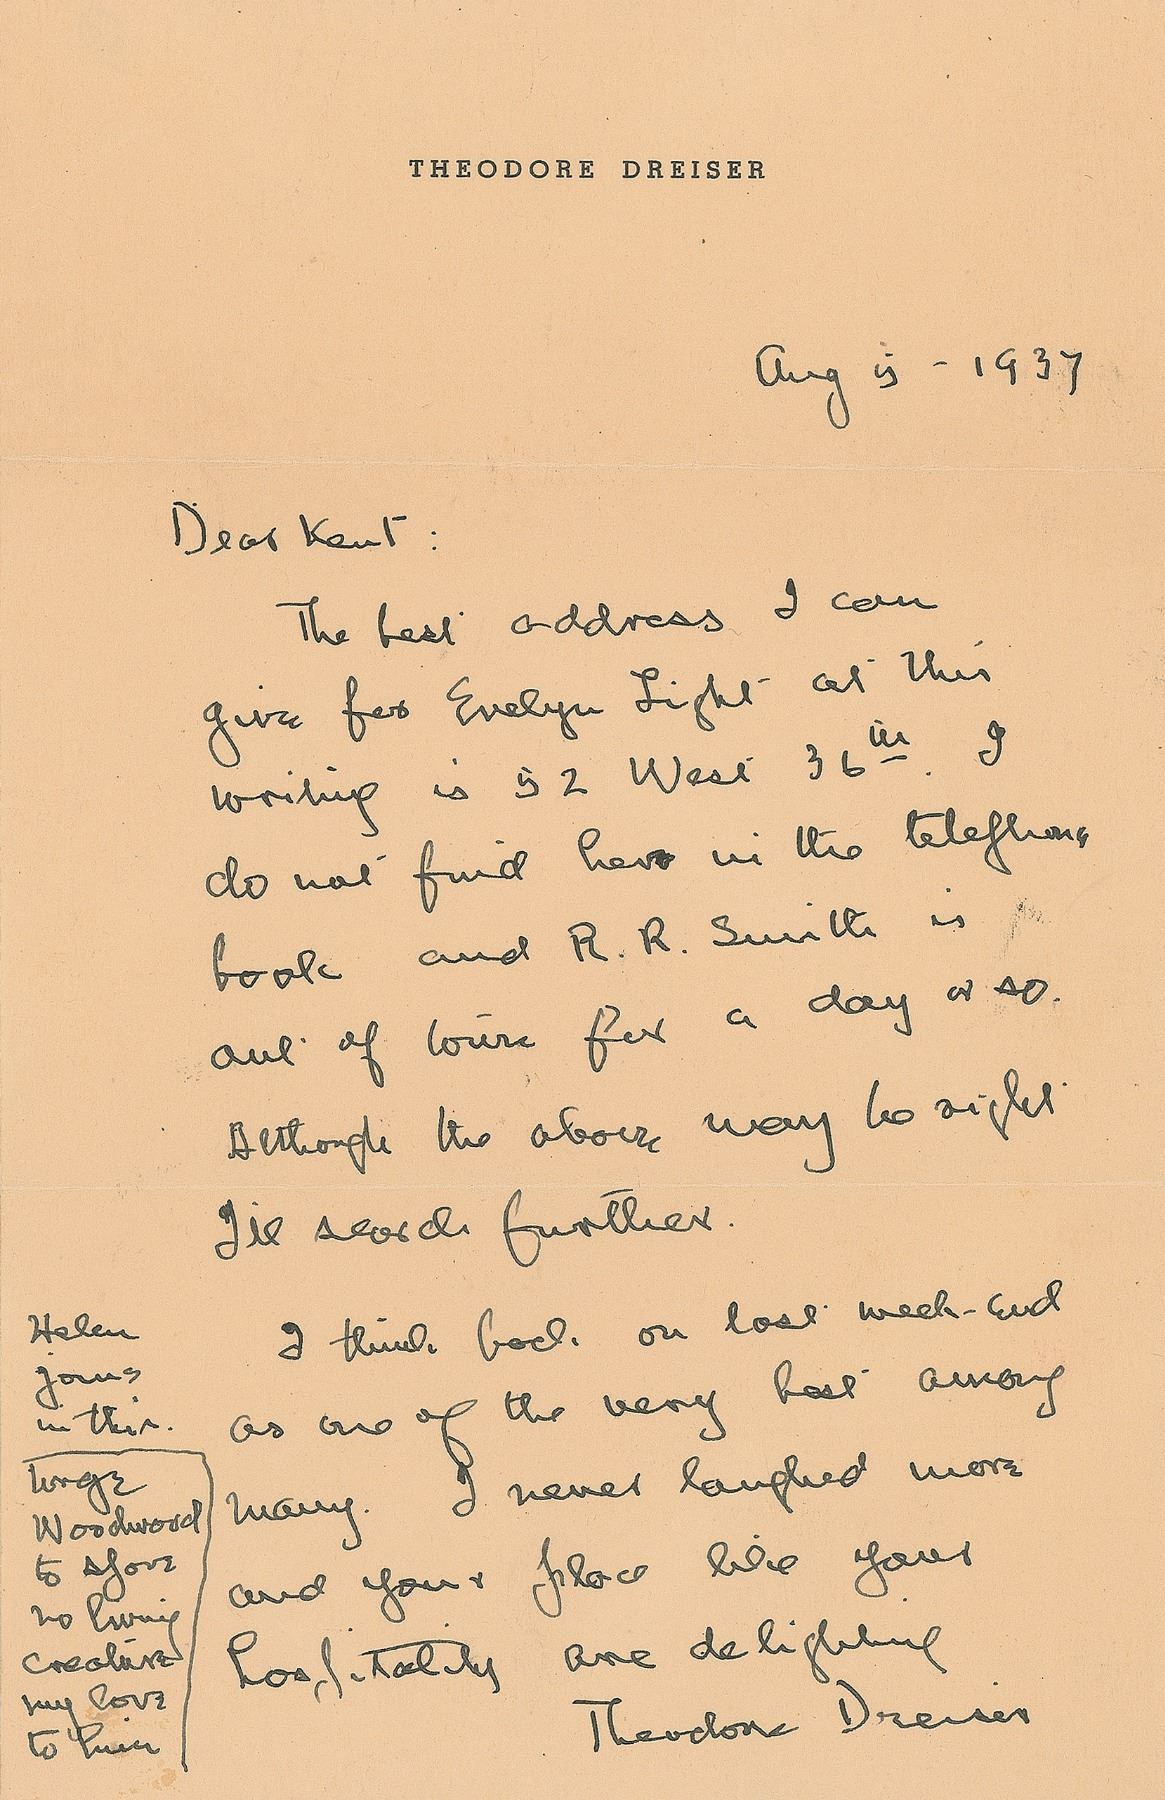 THEODORE DREISER
Aug 5 - 1937
Dear Kent :
The best address I can
give for Evelyn Light at this
writing is 52 West 36th. I
do not find her in the telephone
book and R. R. Smith is
out of town for a day or so.
Although the above may be right
I'll search further.
I think back on last week-end
as one of the very best among
many. I never laughed more
and your place like your
hospitality are delighting
Theodore Dreiser
Helen
joins
in this.
Woodward
to spare
no living
creature
my love
to him